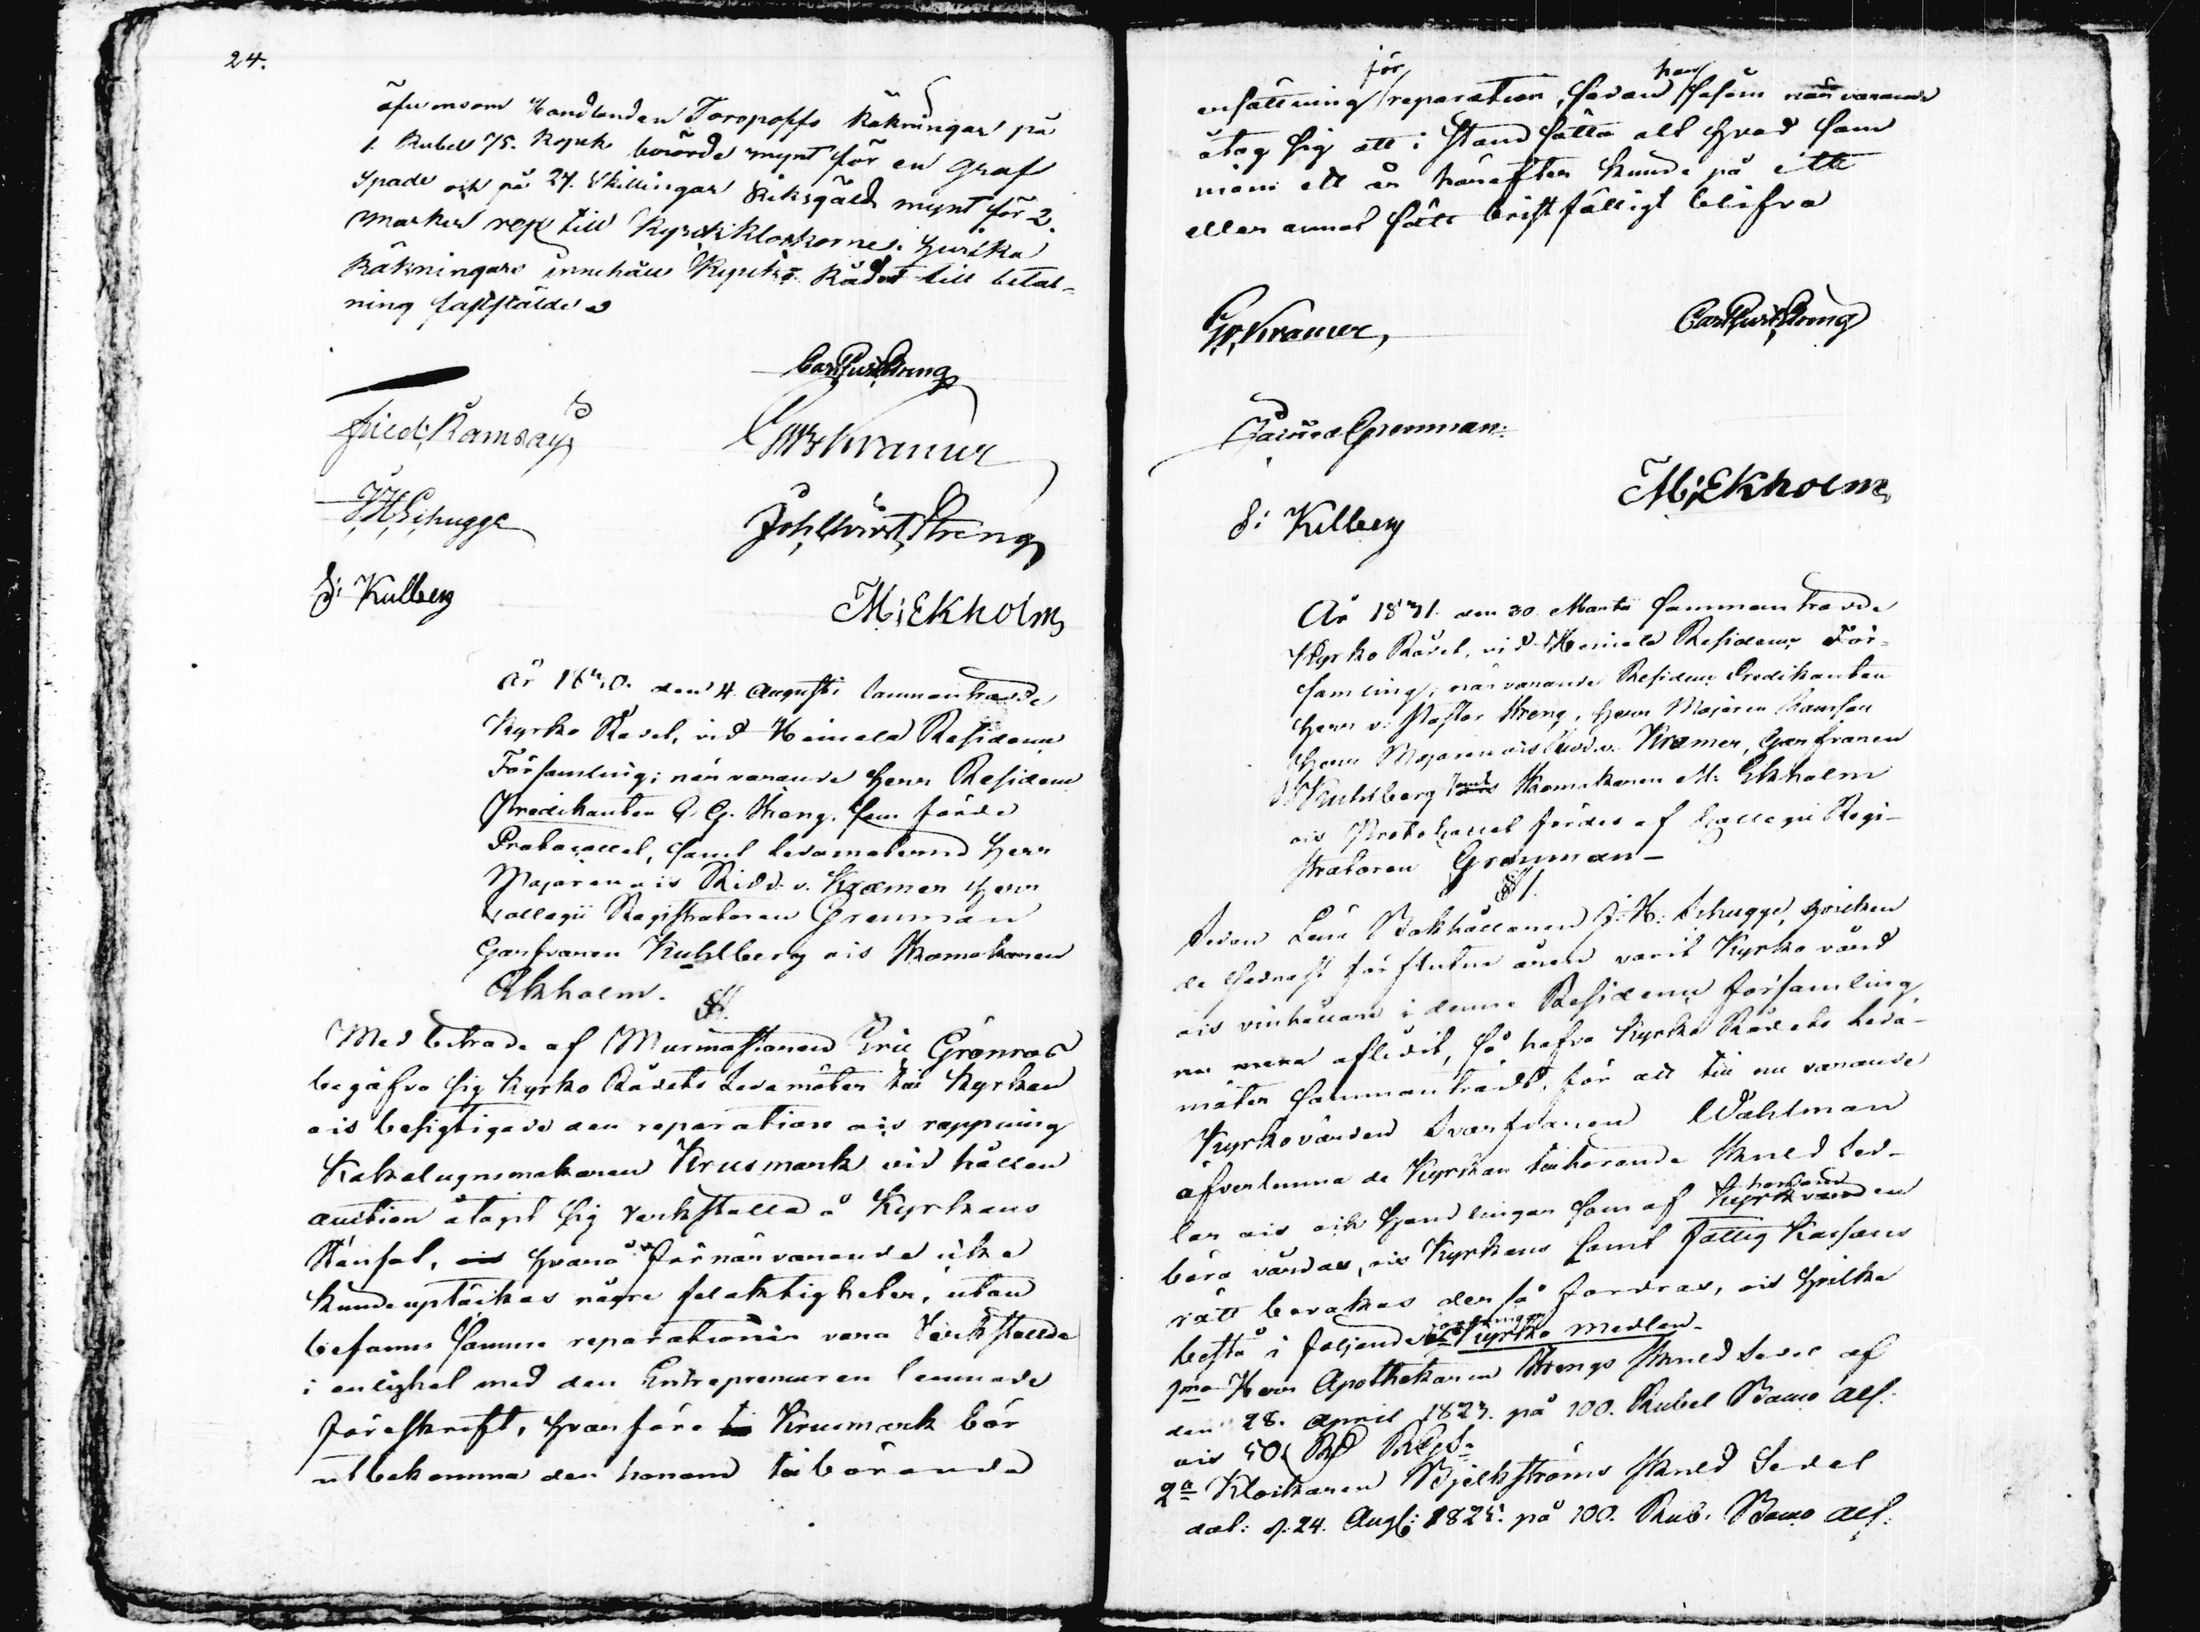 24.
äfvensom Handlanden Toropoffs Räkningar på
1. Rubel 75. Kopek berörde mynt för en Graf
Spade och på 24. Skillingar Riksgäld mynt för 2
marker rep till Kyrckklockorne. hvilka
Räkningars innehåll Kyrcko Rådet till betal-
ning fastställde
Carl Gust Streng
Fried: Ramsay
v: Kræmer
J. H. Schugge
Joh. Streng
Kullberg
M: Ekholm
År 1830. den 4. Augusti sammanträdde
Kyrko Rådet, vid Heinola Residence
Församling; närvarande Herr Residence
Predikanten C. G. Streng. som förde
Protocollet, samt Ledamöterne Herr
Majoren och Ridd. v. Kræmer Herr
Collegii Registratoren Grenman
Garfvaren Kuhlberg och Skomakaren
Ekholm.
§1.
Med biträde af Murmästaren Eric Grönroos
begåfvo sig Kyrko Rådets Ledamöter till Kyrkan
och besigtigade den reparation och rappning
Kakelugnsmakaren Krusmark vid hållen
auction åtagit sig verkställa å Kyrkans
Stenfot, hvarå för närvarande icke
kunde uptäckas några felaktigheter, utan
befanns samma reparation vara verkställde
i enlighet med den Entrepreneuren lemnade
föreskrift, hvarföre Krusmark bör
utbekomma den honom tillkommande
ersättning för reparation, sedan han såsom närvarande
åtog sig att i stånd sätta alt hvad som
inom ett år härefter kunde på ett
eller annat sätt bristfälligt blifva
v. Kræmer,
Carl Gust Streng
Grenman.
M: Ekholm
Kullberg
År 1831. den 30. Martii sammanträdde
Kyrko Rådet, vid Heinola Residence För-
samling; närvarande Residence Predikanten
Herr v. Pastor Streng, Herr Majoren Ramsay
Herr Majoren och Ridd. v. Kræmer, Garfvaren
Kuhlberg samt Skomakaren M. Ekholm
och Protokollet fördes af Collegii Regi-
stratoren Grenman –
§1.
Sedan Läne Bokhållaren J. H. Schugge, hvilken
de sednast förflutne åren varit Kyrko värd
och vinhållare i denne Residence församling
nu mera aflidit, så hafva Kyrko Rådets Leda-
möter sammanträdt, för att till nu varande
Kyrkovärden Svarfvaren Wahlman
öfverlemna de Kyrkan tillhörande Skuld Sed-
lar och Handlingar som af honom
böra vårdas, och Kyrkans samt Fattig Kassans
rätt bevakas der så fordras, och hvilka
bestå i följande Kyrko medlen.
1mo Herr Apothekaren Strengs Skuld Sedel af
den 28. April 1823. på 100. Rubel Banco Ass.
och 50. Rd Rgs.
2a Klockaren Björkströms Skuld Sedel
dat: d. 24. Aug: 1825. på 100. Rub. Banco Ass.